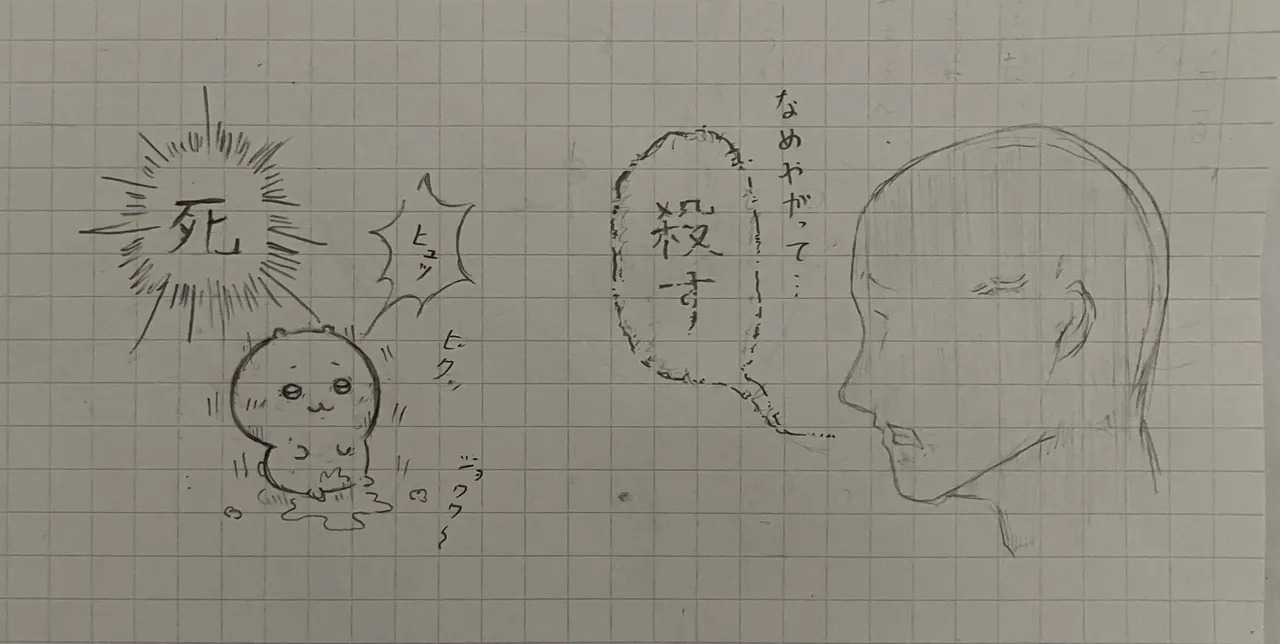 なめやがって…
殺す
ヒュッ
死
ビクッ
ジョワワ〜